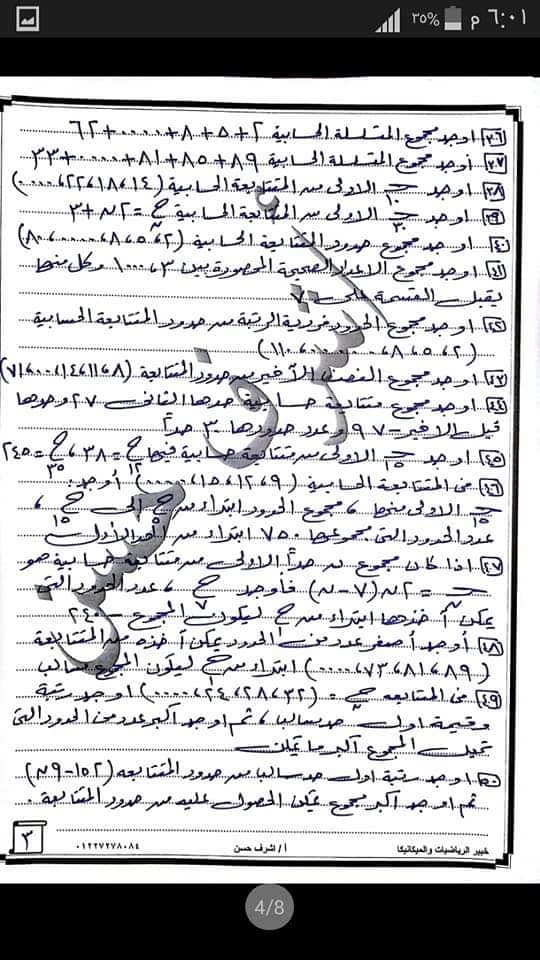 ٦:٠١ م ٣٥%
٣٦ اوجد مجموع المتسلسلة الحسابية ٢+٥+٨+.....+٦٢
٣٧ أوجد مجموع المتسلسلة الحسابية ٨٩+٨٥+٨١+.....+٣٣
٣٨ اوجد جـ١٠ الاولى من المتتابعة الحسابية (١٤، ١٨، ٢٢، .....)
٣٩ اوجد جـ٣٠ الاولى من المتتابعة الحسابية ح = ٢ن+٣
٤٠ اوجد مجموع حدود المتتابعة الحسابية (٢، ٥، ٨، .....، ٨٠)
٤١ اوجد مجموع الاعداد الصحيحة المحصورة بين ٣، ١٠٠٠ وكل منها
يقبل القسمة على ٧
٤٢ اوجد مجموع الحدود فردية الرتبة من حدود المتتابعة الحسابية
(٢، ٥، ٨، .....، ١١٠)
٤٣ اوجد مجموع النصف الأخير من حدود المتتابعة (٨، ١١، ١٤، ...، ٧١)
٤٤ اوجد مجموع متتابعة حسابية حدها الثانى ٢٧ وحدها
قبل الاخير -٩٧ وعدد حدودها ٣٠ حداً
٤٥ اوجد جـ١٥ الاولى من متتابعة حسابية فيها ح١٢ = ٣٨، ح٣٥ = ٢٤٥
٤٦ فى المتتابعة الحسابية (٩، ١٢، ١٥، .....) أوجد:
جـ١٥ الاولى منها، مجموع الحدود ابتداء من ح إلى ح١٥،
عدد الحدود التى مجموعها ٧٥٠ ابتداء من الحد الأول
٤٧ اذا كان مجموع ن حداً الاولى من متتابعة حسابية هو
جـن = ٢ن(٧-ن) فأوجد ح٧، عدد الحدود التى
يمكن أخذها ابتداء من ح١ ليكون المجموع -٢٤٠
٤٨ أوجد أصغر عدد من الحدود يمكن أخذه من المتتابعة
(٨٩، ٨١، ٧٣، .....) ابتداء من ح١ ليكون المجموع سالب
٤٩ فى المتتابعه ح = (٣٢، ٢٨، ٢٤، .....) اوجد رتبة
وقيمة اول حد سالب، ثم اوجد اكبر عدد من الحدود التى
تجعل المجموع اكبر ما يمكن
٥٠ اوجد رتبة اول حد سالب من حدود المتتابعه (١٥٢-٩ن)
ثم اوجد اكبر مجموع يمكن الحصول عليه من حدود المتتابعة.
خبير الرياضيات والميكانيكا أ/ اشرف حسن ٠١٢٢٧٢٧٨٠٨٤ ٣
اشرف حسن
4/8